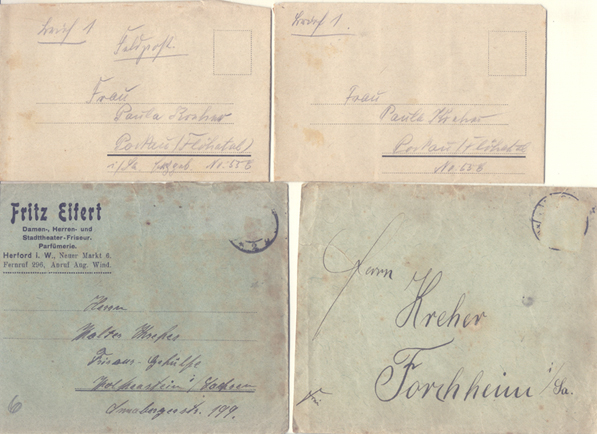 Brief 1
Feldpost.
Frau
Paula Kreher
Pockau (Flöhatal)
i/Sa. No: 55 B
Brief 1.
Frau
Paula Kreher
Pockau (Flöhatal
No: 55 B
Fritz Eifert
Damen-, Herren- und
Stadttheater-Friseur.
Parfümerie.
Herford i. W., Neuer Markt 6.
Fernruf 296, Anruf Aug. Wind.
Herrn
Walter Kreher
Friseur-Gehülfe
Wolkenstein i/Sachsen
Annabergerstr. 199.
6
Herrn
Kreher
Forchheim i/Sa.
frei